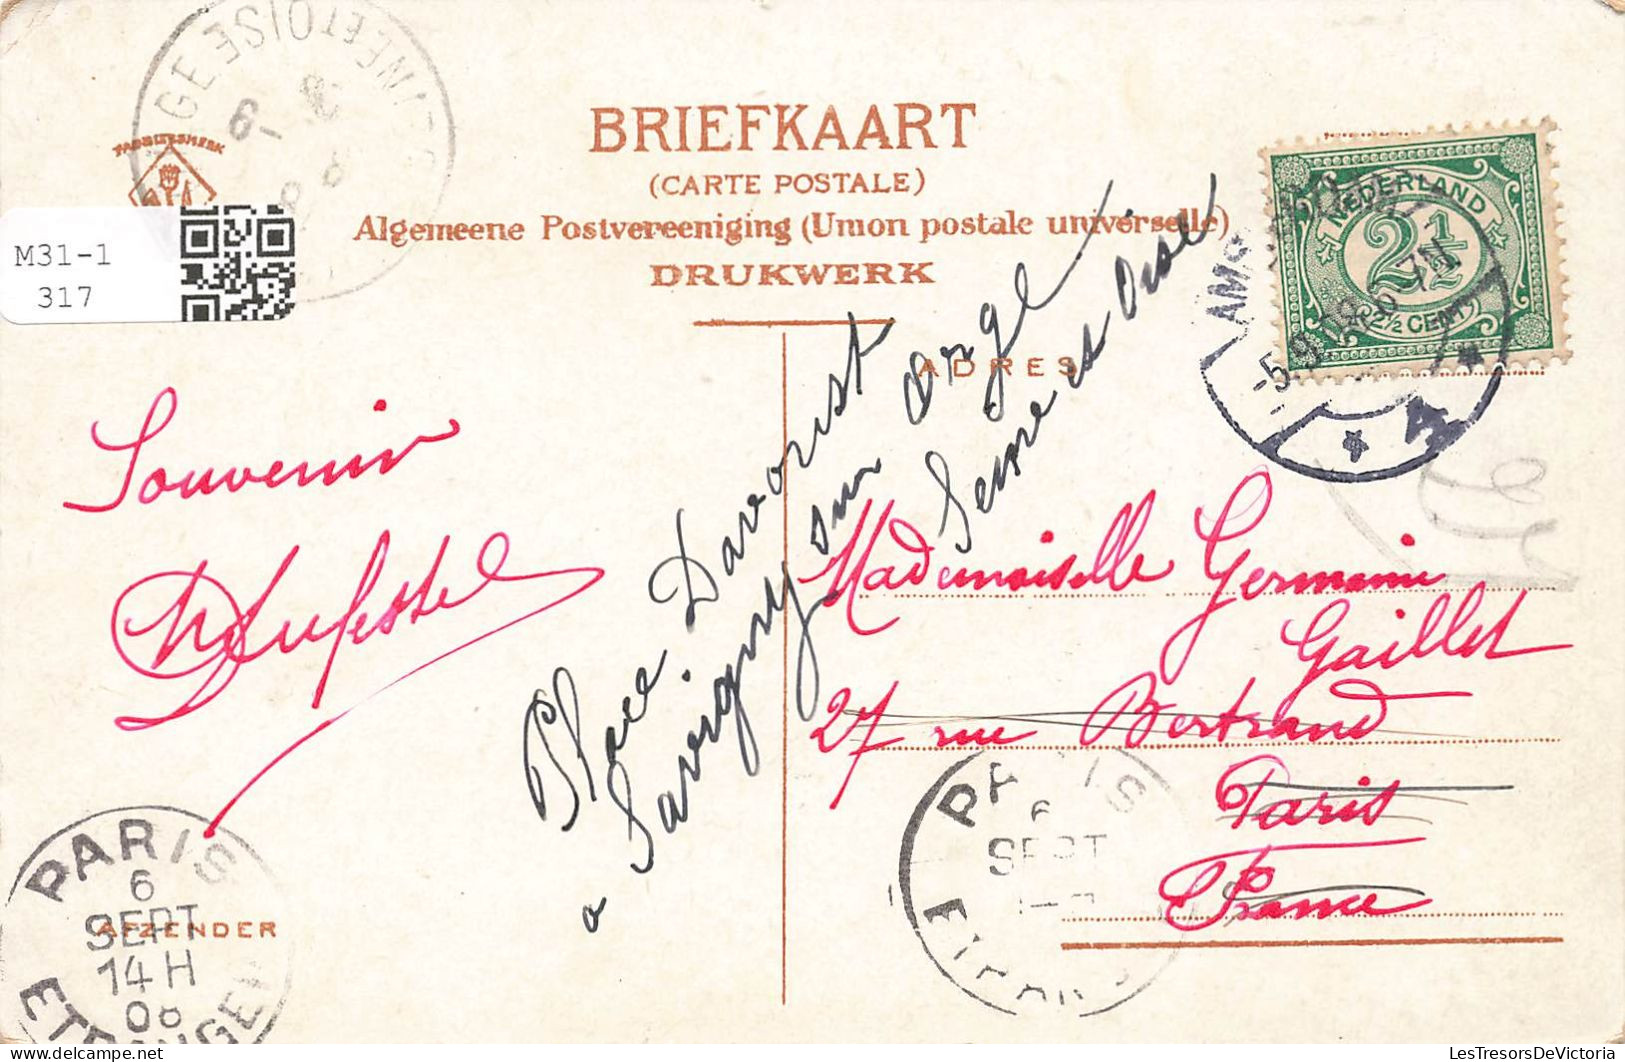 GE SEINE ET OISE
FABRIEKSMERK
BRIEFKAART
(CARTE POSTALE)
Algemeene Postvereeniging (Union postale universelle)
DRUKWERK
M31-1
317
NEDERLAND
2½
2½ CENT
AMS
-5.9
4
ADRES
Souvenir
Place Davoust
a Savigny sur Orge
Seine et Oise
Mademoiselle Germaine
Gaillet
27 rue Bertrand
Paris
France
PARIS
6
SEPT
14 H
06
ETRANGER
AFZENDER
PARIS
6
SEPT
ETRANGER
LesTresorsDeVictoria